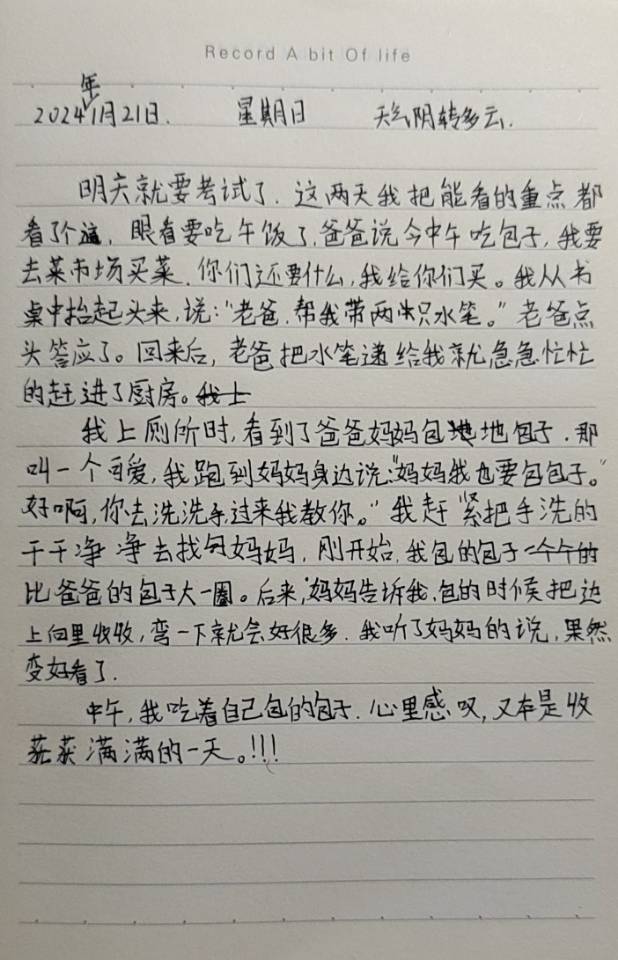 Record A bit Of life
2024年1月21日. 星期日 天气阴转多云.
明天就要考试了. 这两天我把能看的重点都
看了个遍, 眼看要吃午饭了, 爸爸说今中午吃包子, 我要
去菜市场买菜. 你们还要什么, 我给你们买。我从书
桌中抬起头来, 说:"老爸, 帮我带两只水笔。" 老爸点
头答应了。回来后, 老爸把水笔递给我就急急忙忙
的赶进了厨房。我上
我上厕所时, 看到了爸爸妈妈包地包子. 那
叫一个可爱, 我跑到妈妈身边说:"妈妈我也要包包子。"
好啊, 你去洗洗手, 过来我教你。" 我赶紧把手洗的
干干净净去找妈妈, 刚开始, 我包的包子一个个的
比爸爸的包子大一圈。后来, 妈妈告诉我, 包的时候把边
上向里收收, 弯一下就会好很多. 我听了妈妈的说, 果然
变好看了.
中午, 我吃着自己包的包子. 心里感叹, 又本是收
获满满的一天。!!!